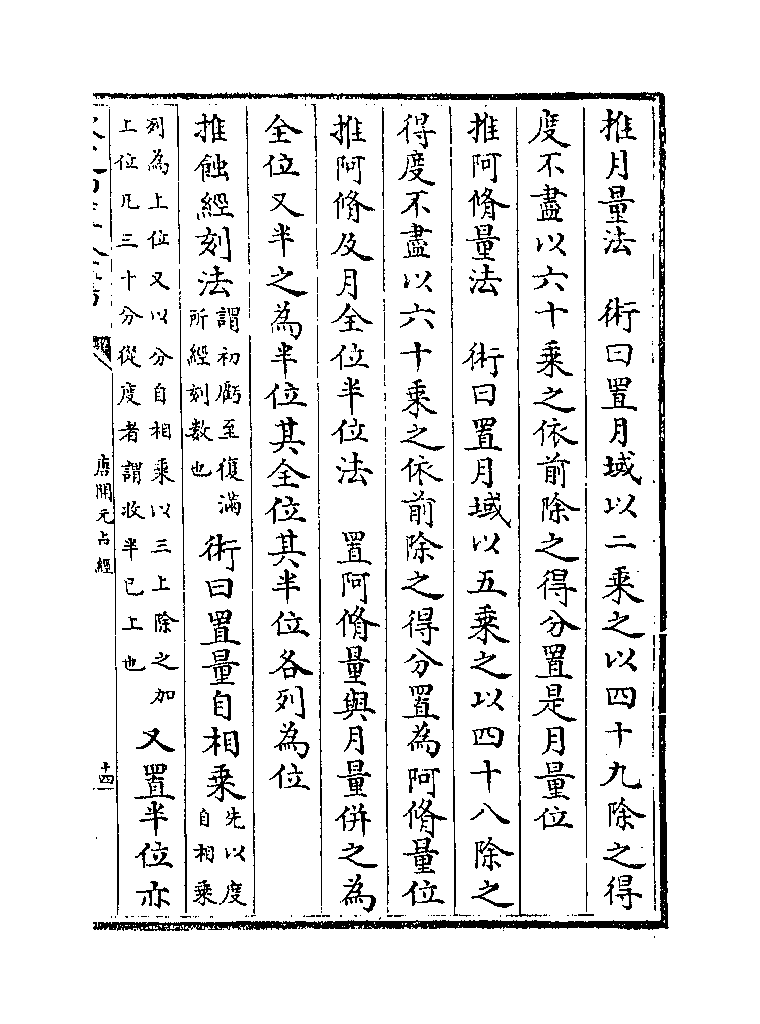 推月量法　術曰置月域以二乘之以四十九除之得
度不盡以六十乘之依前除之得分置是月量位
推阿脩量法　術曰置月域以五乘之以四十八除之
得度不盡以六十乘之依前除之得分置為阿脩量位
推阿脩及月全位半位法　置阿脩量與月量併之為
全位又半之為半位其全位其半位各列為位
推蝕經刻法謂初虧至復滿所經刻數也　術曰置量自相乘先以度自相乘
列為上位又以分自相乘以三上除之加上位凡三十分從度者謂收半已上也又置半位亦
唐開元占經
十四